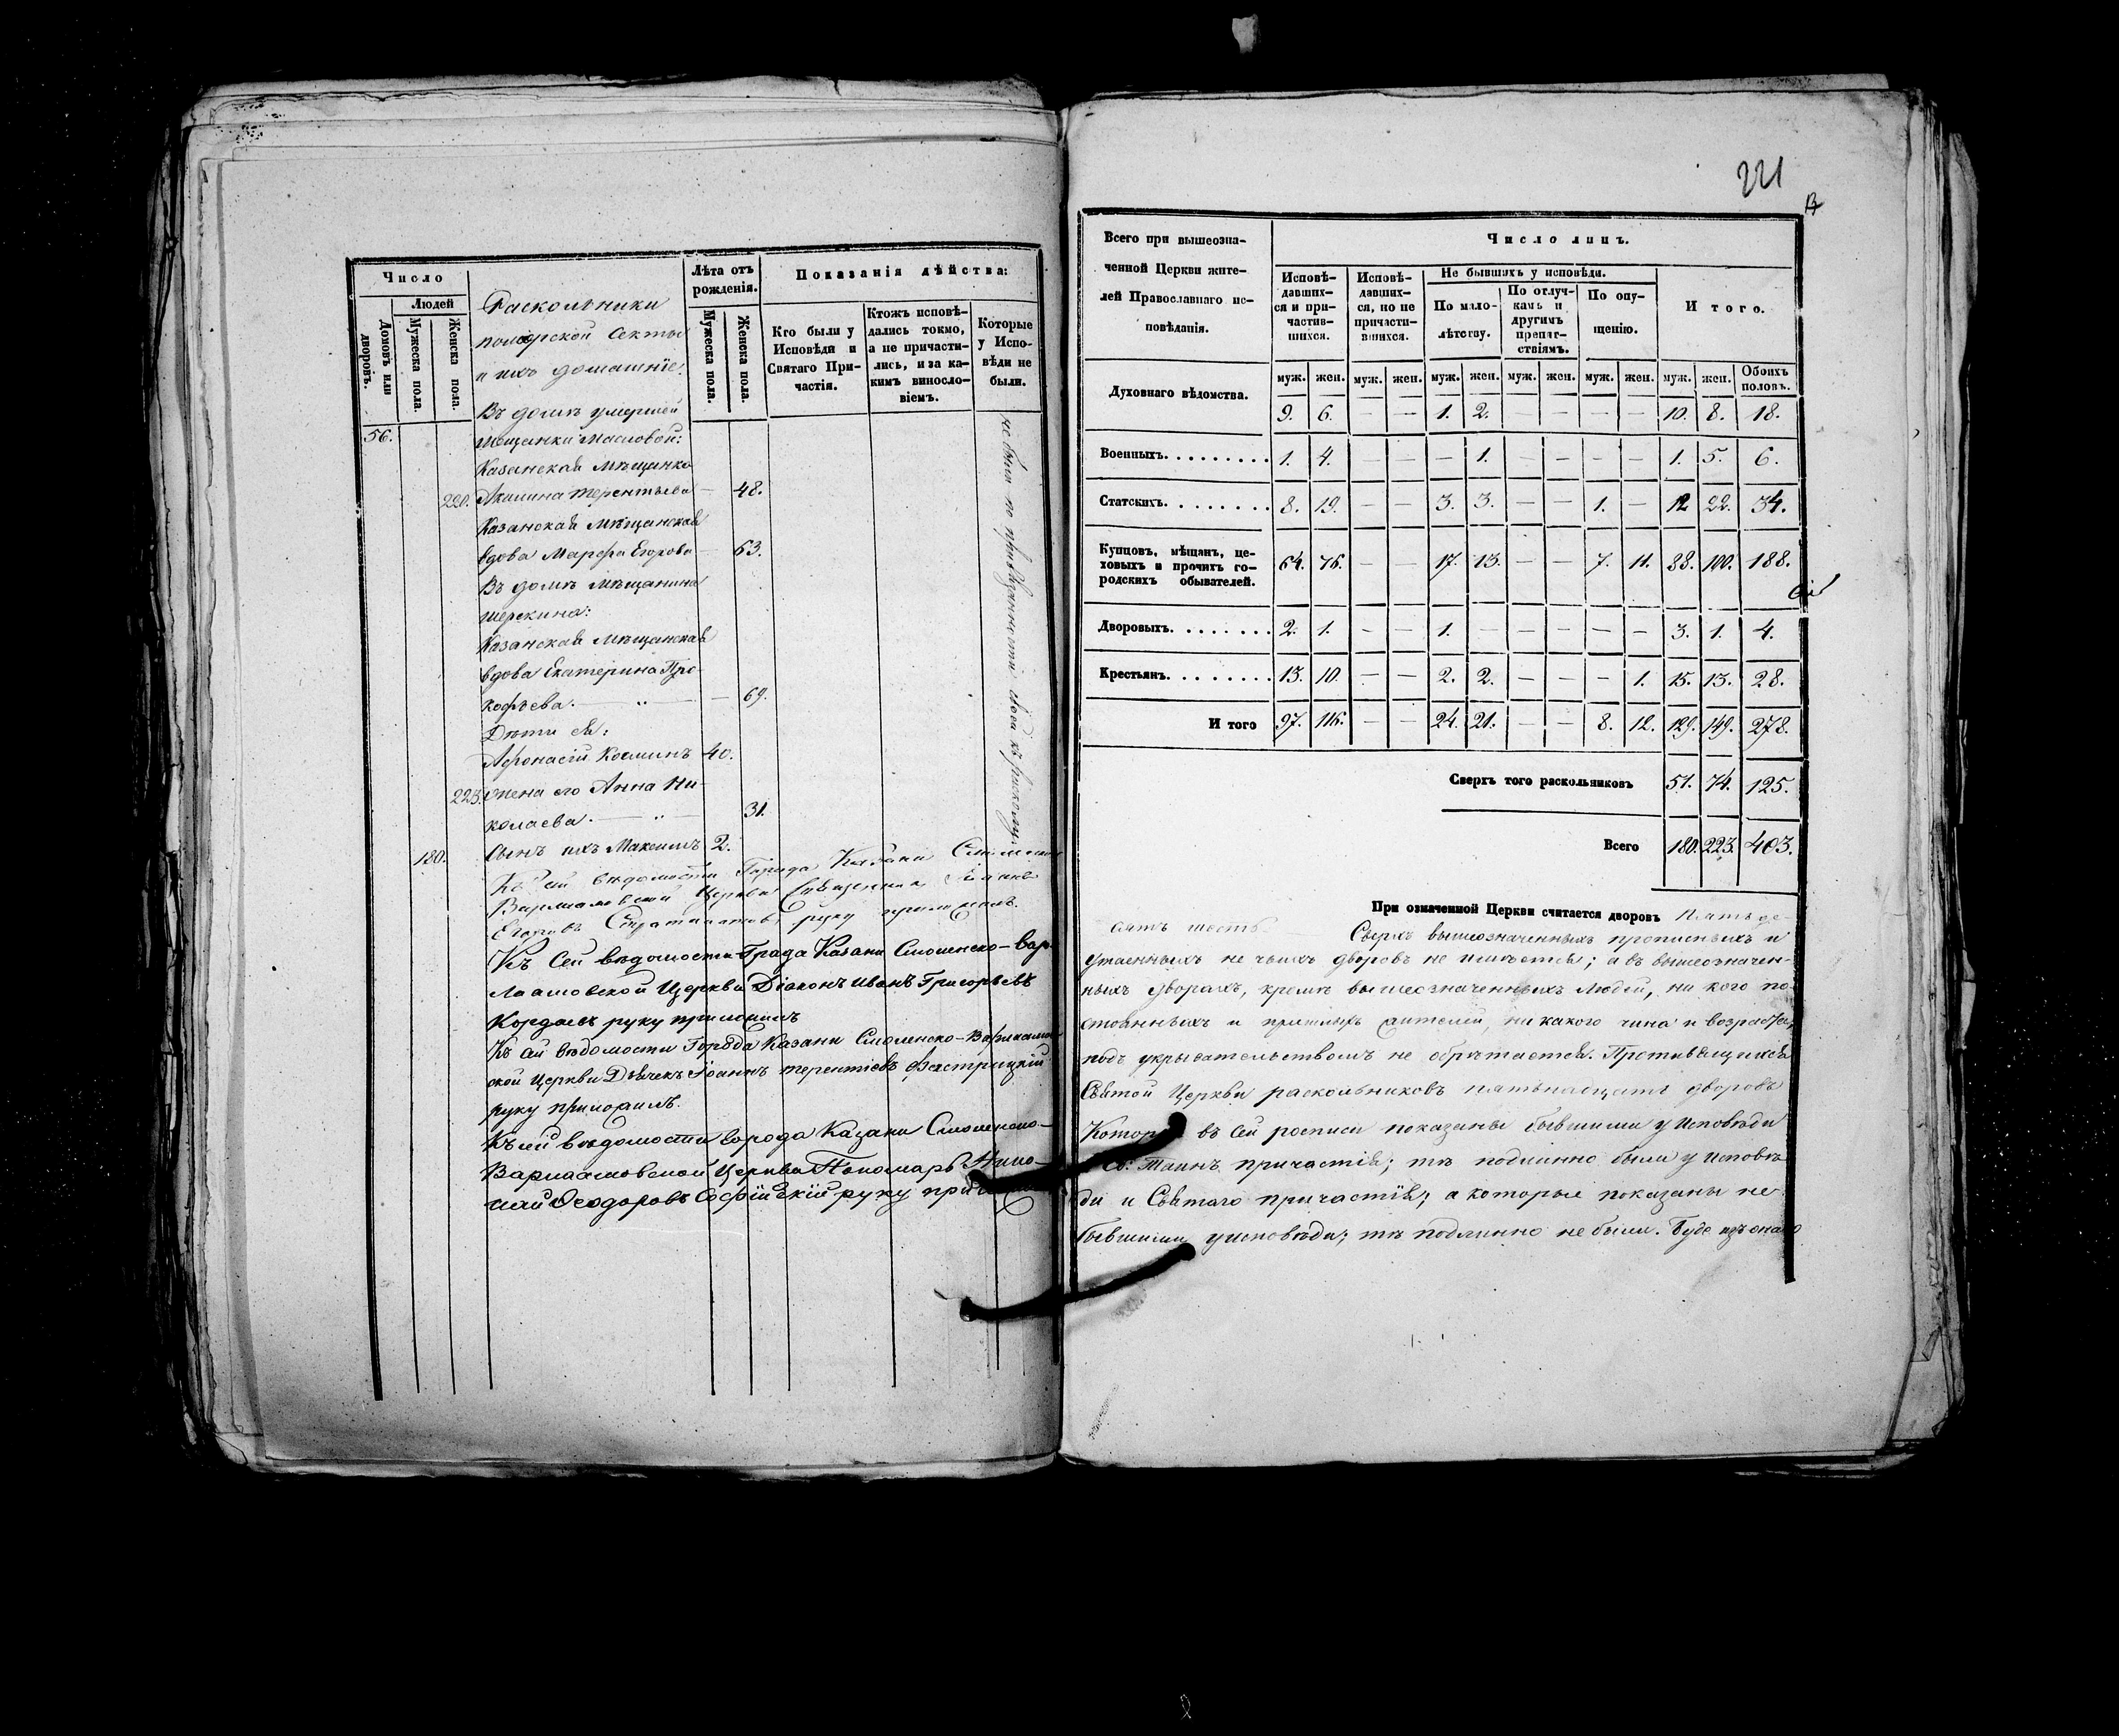 Число
Людей
Домовъ или дворовъ.
Мужеска пола.
Женска пола.
Раскольники
поморской секты
и ихъ домашніе.
Лѣта отъ
рожденія.
Мужеска пола.
Женска пола.
Показанія дѣйства:
Кто были у
Исповѣди и
Святаго При-
частія.
Ктожъ исповѣ-
дались токмо,
а не причасти-
лись, и за ка-
кимъ виносло-
віемъ.
Которые
у Испо-
вѣди не
были.
Въ домѣ умершей
56. мѣщанки Масловой:
Казанская мѣщанка
220. Акилина Терентьева — 48.
Казанская мѣщанская
вдова Марфа Егорова — 63.
Въ домѣ мѣщанина
Шерскина:
Казанская мѣщанская
вдова Екатерина Про-
кофьева. — „ — — 69.
Дѣти ея:
Афонасій Косминъ 40.
223. Жена его Анна Ни-
колаева. — „ — 31.
180. Сынъ ихъ Максимъ 2.
не были по приверженности своей къ расколу
Къ сей вѣдомости Города Казани Смоленско
Варлаамовской Церкви Священникъ
руку приложилъ.
Къ сей вѣдомости Града Казани Смоленско-Вар-
лаамовской Церкви Діаконъ Иванъ Григорьевъ
руку приложилъ
Къ сей вѣдомости Города Казани Смоленско-Варлаамов-
ской Церкви Дьячекъ Іоаннъ Терентіевъ
руку приложилъ.
Къ сей вѣдомости города Казани Смоленско-
Варлаамовской Церкви Пономарь Нико-
лай Ѳеодоровъ Софійскій руку
221
Всего при вышеозна-
ченной Церкви жите-
лей Православнаго ис-
повѣданія.
Число лицъ.
Исповѣ-
давших-
ся и при-
частив-
шихся.
Исповѣ-
давших-
ся, но не
причасти-
вшихся.
Не бывшихъ у исповѣди.
По мало-
лѣтству.
По отлуч-
камъ и
другимъ
препят-
ствіямъ.
По опу-
щенію.
Итого.
муж. жен. муж. жен. муж. жен. муж. жен. муж. жен. муж. жен. Обоихъ половъ.
Духовнаго вѣдомства. 9. 6. — — 1. 2. — — — — 10. 8. 18.
Военныхъ. . . . . . . . . 1. 4. — — — 1. — — — — 1. 5. 6.
Статскихъ. . . . . . . . 8. 19. — — 3. 3. — — 1. — 12 22. 34.
Купцовъ, мѣщанъ, це-
ховыхъ и прочихъ го-
родскихъ обывателей. 64. 76. — — 17. 13. — — 7. 11. 88. 100. 188.
Дворовыхъ. . . . . . . 2. 1. — — 1. — — — — — 3. 1. 4.
Крестьянъ. . . . . . . . 13. 10. — — 2. 2. — — — 1. 15. 13. 28.
Итого 97. 116. — — 24. 21. — — 8. 12. 129. 149. 278.
Сверхъ того раскольниковъ 51. 74. 125.
Всего 180. 223. 403.
При означенной Церкви считается дворовъ Пятьде-
сятъ шесть. Сверхъ вышеозначенныхъ прописныхъ и
утаенныхъ не чьихъ дворовъ не имѣется; а въ вышеозначен-
ныхъ дворахъ, кромѣ вышеозначенныхъ людей, ни кого по-
стоянныхъ и пришлыхъ жителей, ни какого чина и возраста,
подъ укрывательствомъ не обрѣтается. Противящихся
Святой Церкви раскольниковъ пятьнадцать дворовъ
Которые въ сей росписи показаны бывшими у Исповѣди
и Св: Таинъ причастія; тѣ подлинно были у исповѣ-
ди и Святаго причастія; а которые показаны не
бывшими у исповѣди; тѣ подлинно не были. Буде изъ